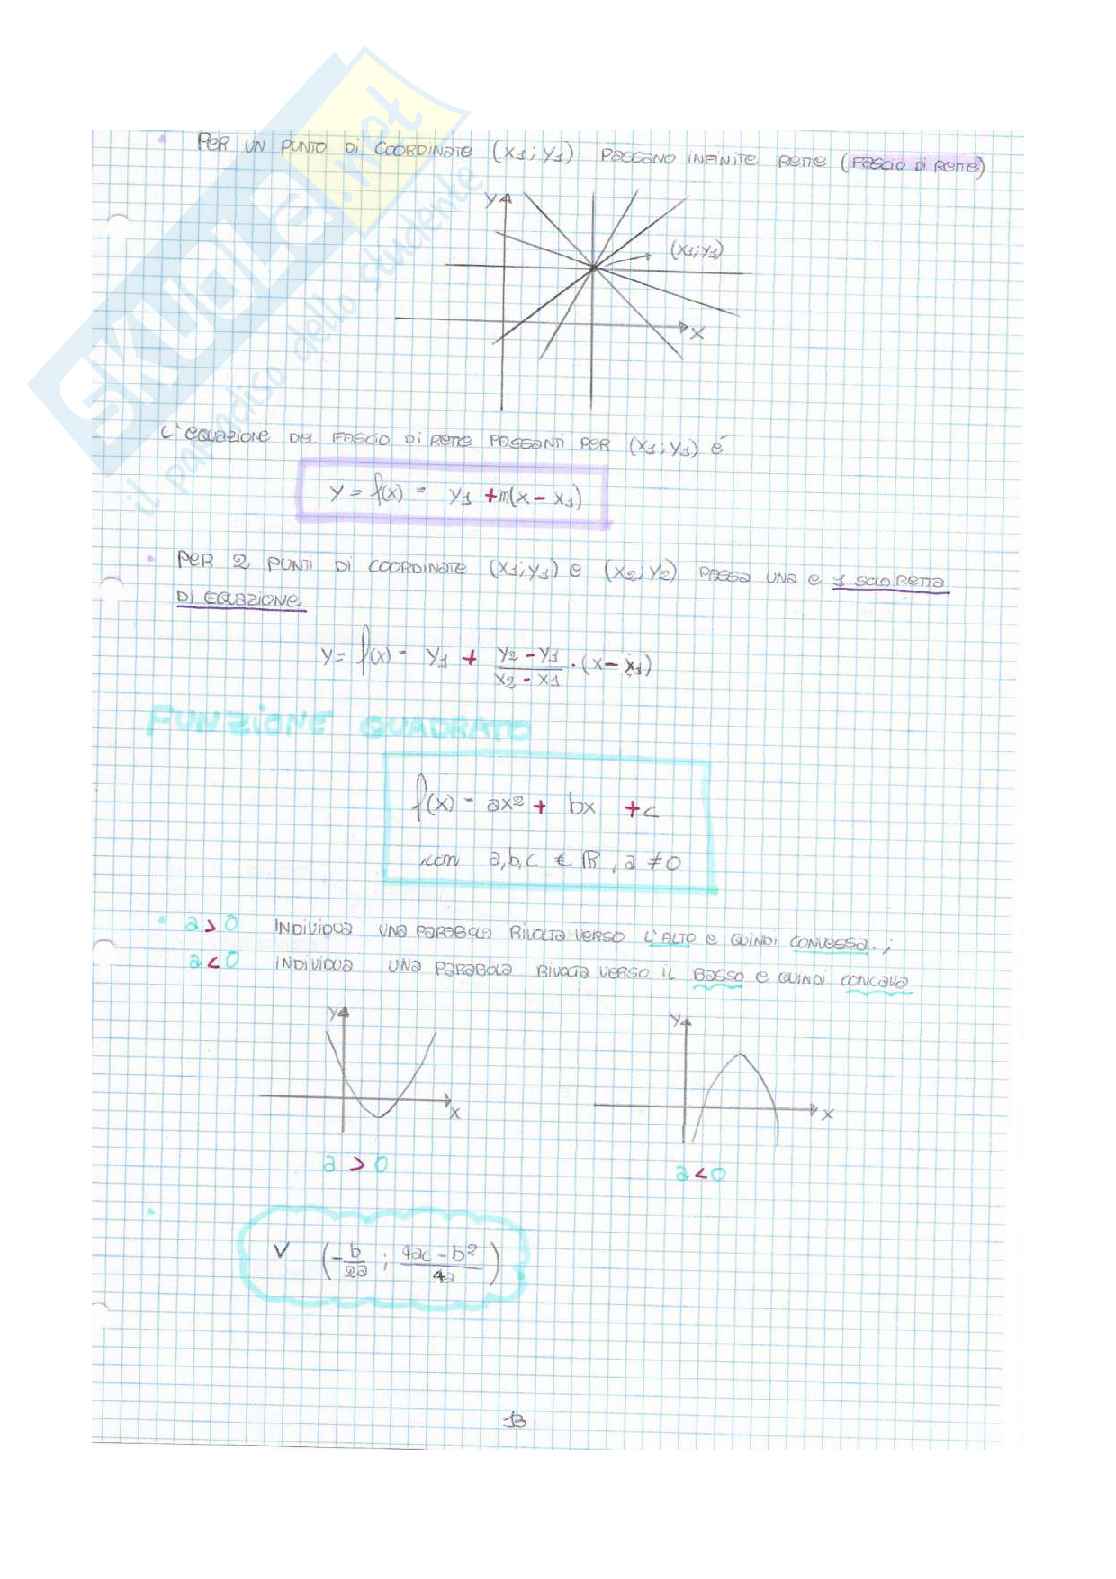 SKUOLA.net
il paradiso dello studente
• PER UN PUNTO DI COORDINATE (x1; y1) PASSANO INFINITE RETTE (FASCIO DI RETTE)
y
(x1; y1)
x
L'EQUAZIONE DEL FASCIO DI RETTE PASSANTI PER (x1; y1) È
y = f(x) = y1 + m(x - x1)
• PER 2 PUNTI DI COORDINATE (x1; y1) E (x2; y2) PASSA UNA E 1 SOLO RETTA
DI EQUAZIONE
y = f(x) = y1 + (y2 - y1)/(x2 - x1) · (x - x1)
FUNZIONE QUADRATO
f(x) = ax2 + bx + c
con a,b,c ∈ R, a ≠ 0
• a > 0 INDIVIDUA UNA PARABOLA RIVOLTA VERSO L'ALTO E QUINDI CONVESSA.;
a < 0 INDIVIDUA UNA PARABOLA RIVOLTA VERSO IL BASSO E QUINDI CONCAVA
y
x
y
x
a > 0
a < 0
• V (-b/2a ; 4ac - b²/4a)
13